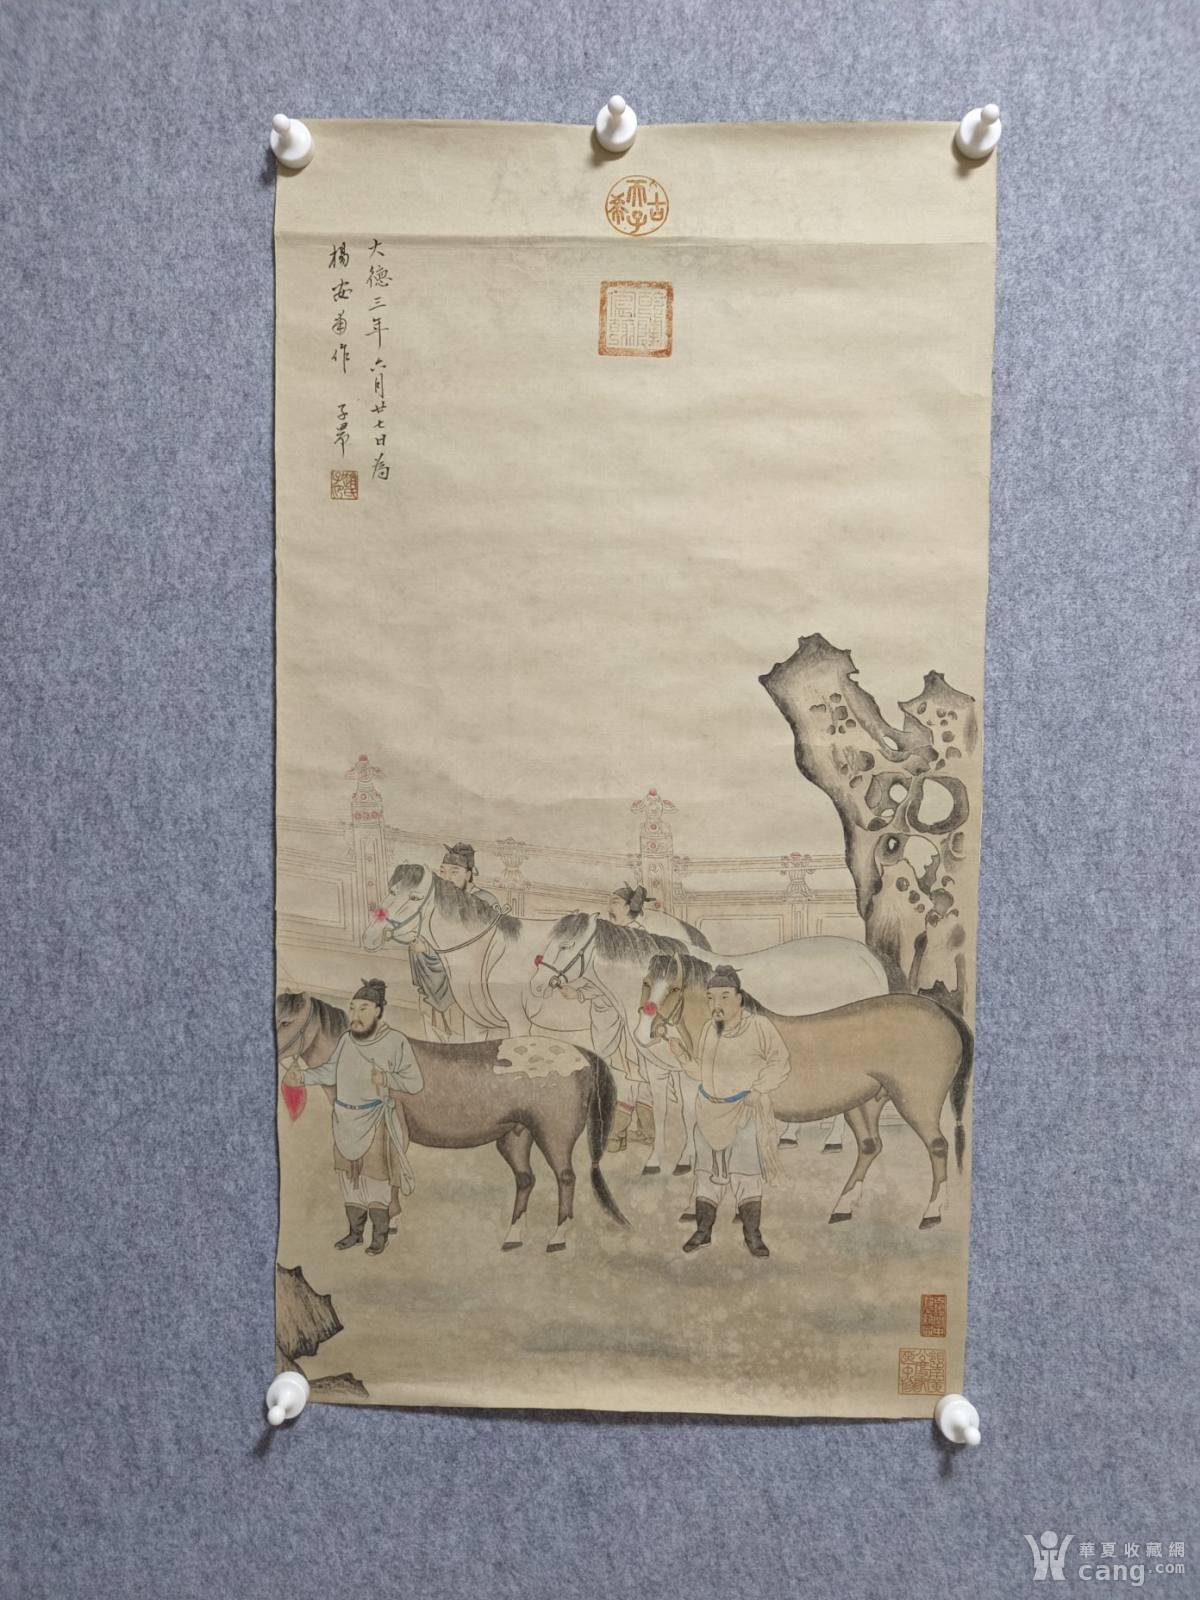 古希天子
大德三年六月廿七日為
楊安甫作 子昂
華夏收藏網
cang.com